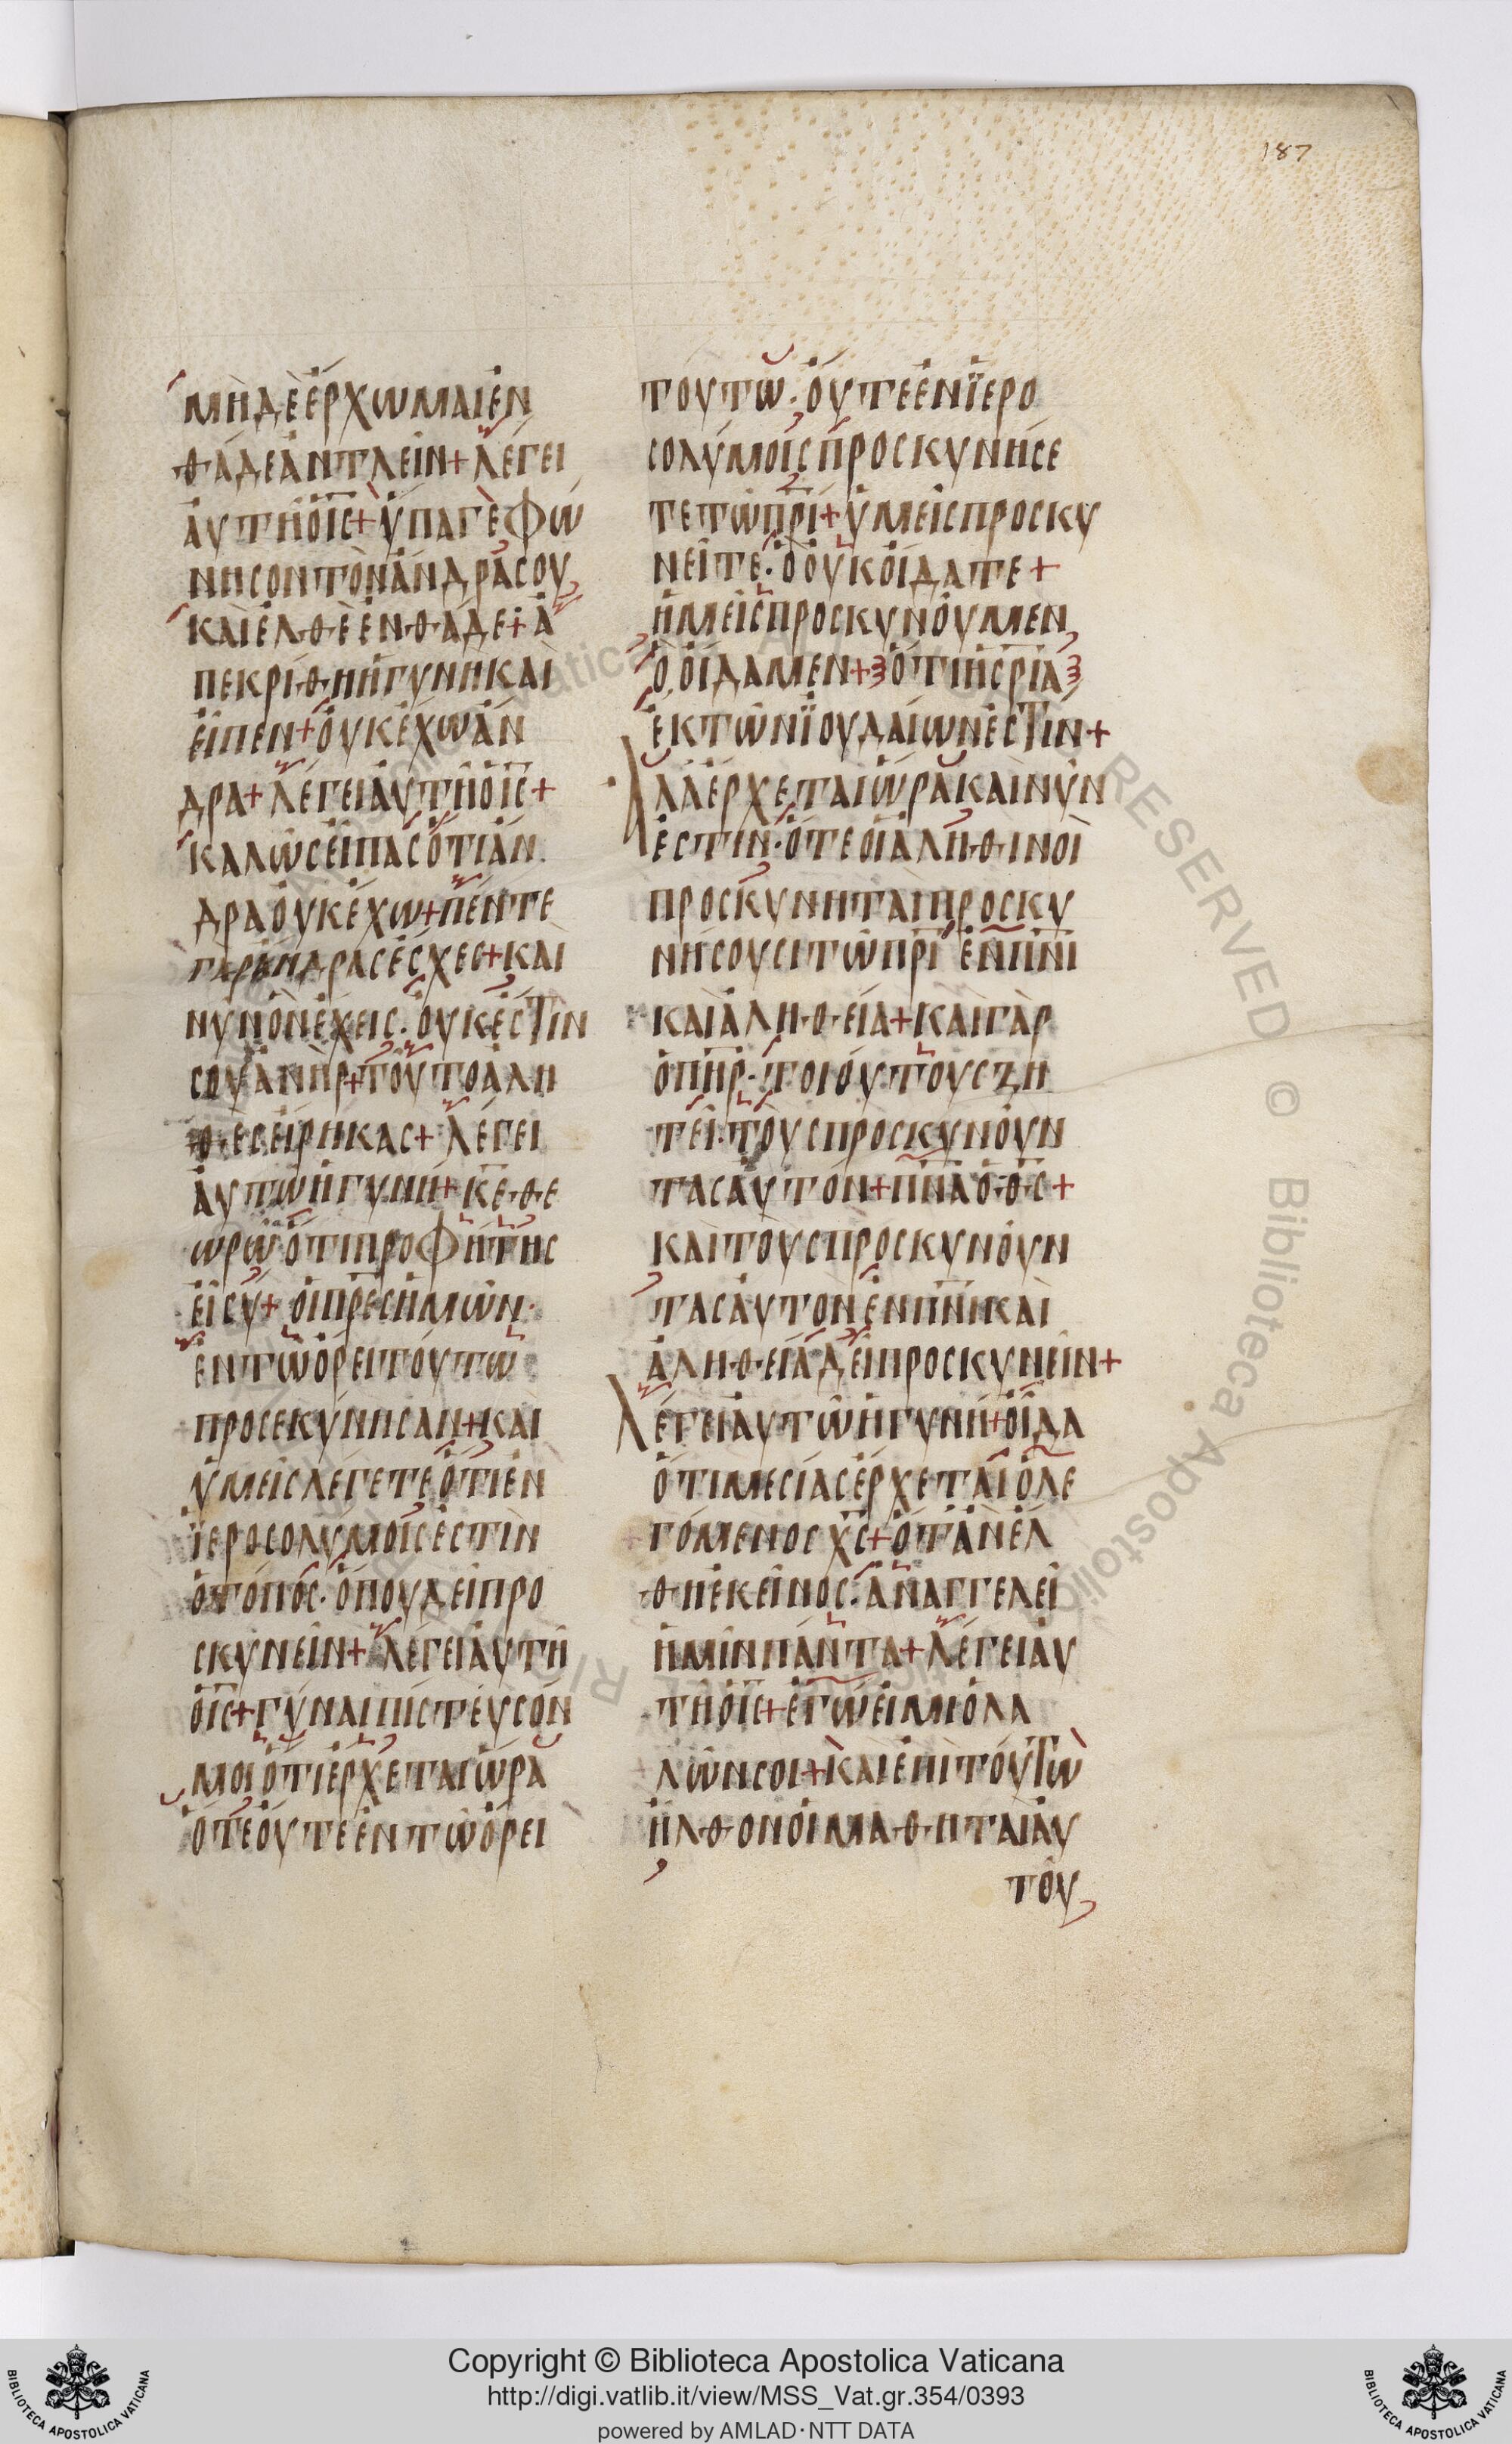 187
ΜΗΔΕΕΡΧΩΜΑΙΕΝ
ΘΑΔΕΑΝΤΛΕΙΝ+ΛΕΓΕΙ
ΑΥΤΗΟΙ̅Σ̅+ΥΠΑΓΕΦΩ
ΝΗΣΟΝΤΟΝΑΝΔΡΑΣΟΥ
ΚΑΙΕΛΘΕΕΝΘΑΔΕ+Α
ΠΕΚΡΙΘΗΗΓΥΝΗΚΑΙ
ΕΙΠΕΝ+ΟΥΚΕΧΩΑΝ
ΔΡΑ+ΛΕΓΕΙΑΥΤΗΟΙ̅Σ̅+
ΚΑΛΩΣΕΙΠΑΣΟΤΙΑΝ
ΔΡΑΟΥΚΕΧΩ+ΠΕΝΤΕ
ΓΑΡΑΝΔΡΑΣΕΣΧΕΣ+ΚΑΙ
ΝΥΝΟΝΕΧΕΙΣ·ΟΥΚΕΣΤΙΝ
ΣΟΥΑΝΗΡ+ΤΟΥΤΟΑΛΗ
ΘΕΣΕΙΡΗΚΑΣ+ΛΕΓΕΙ
ΑΥΤΩΗΓΥΝΗ+Κ̅Ε̅ΘΕ
ΩΡΩΟΤΙΠΡΟΦΗΤΗΣ
ΕΙΣΥ+ΟΙΠ̅Ρ̅Ε̅Σ̅ΗΜΩΝ·
ΕΝΤΩΟΡΕΙΤΟΥΤΩ
ΠΡΟΣΕΚΥΝΗΣΑΝ+ΚΑΙ
ΥΜΕΙΣΛΕΓΕΤΕΟΤΙΕΝ
ΪΕΡΟΣΟΛΥΜΟΙΣΕΣΤΙΝ
ΟΤΟΠΟΣ·ΟΠΟΥΔΕΙΠΡΟ
ΣΚΥΝΕΙΝ+ΛΕΓΕΙΑΥΤΗ
ΟΙ̅Σ̅+ΓΥΝΑΙΠΙΣΤΕΥΣΟΝ
ΜΟΙΟΤΙΕΡΧΕΤΑΙΩΡΑ
ΟΤΕΟΥΤΕΕΝΤΩΟΡΕΙ
ΤΟΥΤΩ·ΟΥΤΕΕΝΪΕΡΟ
ΣΟΛΥΜΟΙΣΠΡΟΣΚΥΝΗΣΕ
ΤΕΤΩΠ̅Ρ̅Ι̅+ΥΜΕΙΣΠΡΟΣΚΥ
ΝΕΙΤΕ·ΟΟΥΚΟΙΔΑΤΕ+
ΗΜΕΙΣΠΡΟΣΚΥΝΟΥΜΕΝ
ΟΟΙΔΑΜΕΝ+ΟΤΙΗΣ̅Ρ̅Ι̅Α̅
ΕΚΤΩΝΪΟΥΔΑΙΩΝΕΣΤΙΝ+
ΑΛΛΑΕΡΧΕΤΑΙΩΡΑΚΑΙΝΥΝ
ΕΣΤΙΝ·ΟΤΕΟΙΑΛΗΘΙΝΟΙ
ΠΡΟΣΚΥΝΗΤΑΙΠΡΟΣΚΥ
ΝΗΣΟΥΣΙΤΩΠ̅Ρ̅Ι̅ΕΝΠ̅Ν̅Ι̅
ΚΑΙΑΛΗΘΕΙΑ+ΚΑΙΓΑΡ
ΟΠ̅Η̅Ρ̅·ΤΟΙΟΥΤΟΥΣΖΗ
ΤΕΙ·ΤΟΥΣΠΡΟΣΚΥΝΟΥΝ
ΤΑΣΑΥΤΟΝ+Π̅Ν̅Α̅ΟΘ̅Σ̅+
ΚΑΙΤΟΥΣΠΡΟΣΚΥΝΟΥΝ
ΤΑΣΑΥΤΟΝΕΝΠ̅Ν̅Ι̅ΚΑΙ
ΑΛΗΘΕΙΑΔΕΙΠΡΟΣΚΥΝΕΙΝ+
ΛΕΓΕΙΑΥΤΩΗΓΥΝΗ+ΟΙΔΑ
ΟΤΙΜΕΣΙΑΣΕΡΧΕΤΑΙΟΛΕ
ΓΟΜΕΝΟΣΧ̅Σ̅+ΟΤΑΝΕΛ
ΘΗΕΚΕΙΝΟΣ·ΑΝΑΓΓΕΛΕΙ
ΗΜΙΝΠΑΝΤΑ+ΛΕΓΕΙΑΥ
ΤΗΟΙ̅Σ̅+ΕΓΩΕΙΜΙΟΛΑ
ΛΩΝΣΟΙ+ΚΑΙΕΠΙΤΟΥΤΩ
ΗΛΘΟΝΟΙΜΑΘΗΤΑΙΑΥ
ΤΟΥ
RESERVED © Biblioteca Apostolica
Copyright © Biblioteca Apostolica Vaticana
http://digi.vatlib.it/view/MSS_Vat.gr.354/0393
powered by AMLAD·NTT DATA
BIBLIOTECA APOSTOLICA VATICANA
BIBLIOTECA APOSTOLICA VATICANA